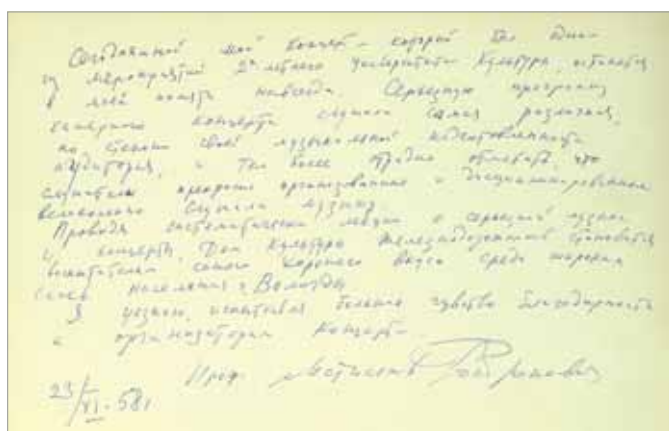 Сегодняшний мой концерт – который был одним
из мероприятий 2х летнего университета Культуры, останется
в моей памяти навсегда. Серьезную программу
камерного концерта слушала самая различная,
по степени своей музыкальной подготовленности
аудитория, и тем более отрадно отметить, что
слушатели прекрасно организованно и дисциплинированно
великолепно слушали музыку.
Проводя систематически лекции о серьезной музыке
и концерты, Дом Культуры Железнодорожников становится
воспитателем самого хорошего вкуса среди широких
населения г. Вологды
Я уезжаю, испытывая большое чувство благодарности
к организаторам концерта
Проф. Мстислав Ростропович
23/XI-58г